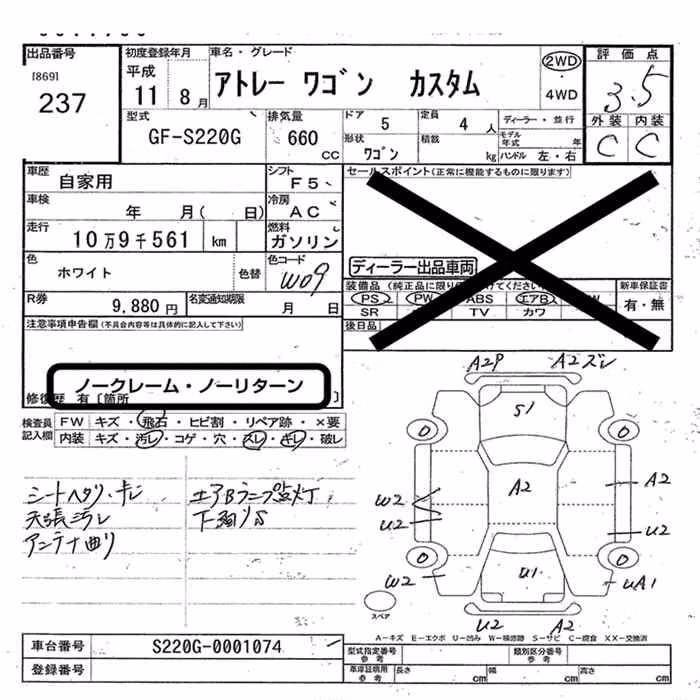 出品番号
[869]
237
初度登録年月
平成
11 8月
車名・グレード
アトレー ワゴン カスタム
2WD
・
4WD
評価点
3.5
外装 内装
C C
型式
GF-S220G
排気量
660
CC
ドア
5
定員
4人
形状
ワゴン
積載
kg
ディーラー・並行
モデル年式 年
ハンドル 左・右
車歴
自家用
車検
年 月( 日)
走行
10万9千561 km
色
ホワイト
色替
シフト
F5
冷房
AC
燃料
ガソリン
色コード
W09
R券
9,880円
名変通知期限
月 日
セールスポイント(正常に機能するものに限ります)
ディーラー出品車両
装備品
PS PW ABS エアB
SR TV カワ
後日品
新車保証書
有・無
注意事項申告欄(不具合内容等は具体的に記入して下さい)
ノークレーム・ノーリターン
修復歴 有〔箇所 〕
検査員記入欄
FW キズ・飛石・ヒビ割・リペア跡・×要
内装 キズ・汚レ・コゲ・穴・スレ・キレ・破レ
シートヘタリ・キレ
天張汚レ
アンテナ曲リ
エアBランプ点灯
下廻リS
A29 A2ズレ
S1
0 0
A2
A2
W2
U2 U2
0 0
W2 U1 UA1
U2 A2
スペア
A-キズ E-エクボ U-凹み W-補修跡 S-サビ C-腐食 XX-交換済
車台番号
S220G-0001074
登録番号
型式指定番号
参考
類別区分番号
参考
車庫証明用
参考
長さ cm
幅 cm
高さ cm